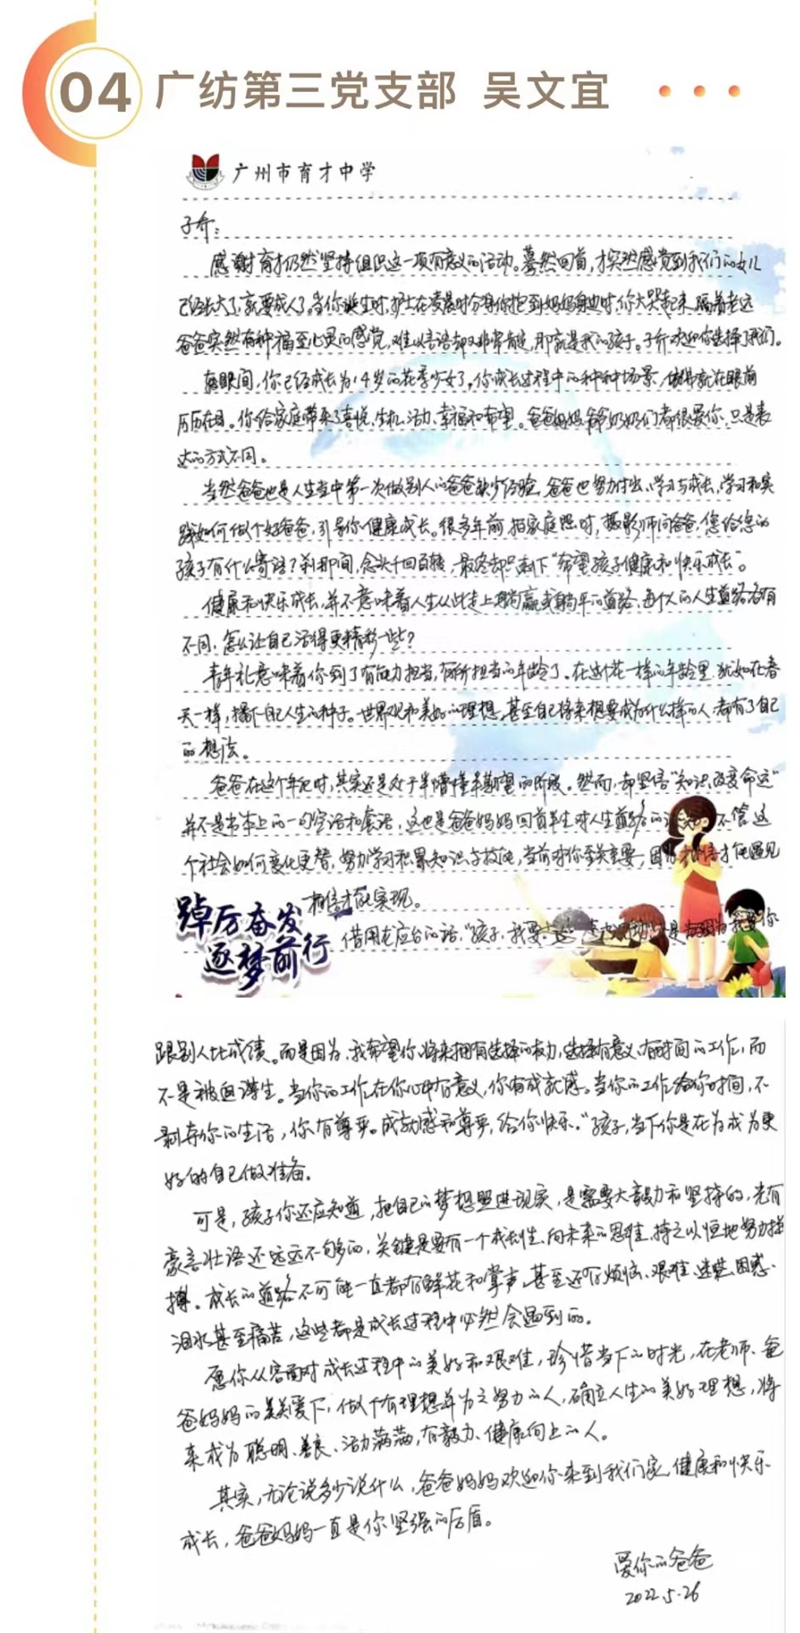 04 广纺第三党支部 吴文宜
广州市育才中学
子乔:
感谢育才仍然坚持组织这一项有意义的活动。蓦然回首,才突然感觉到我们的女儿
已经长大了,就要成人了。当你诞生时,护士在凌晨时分将你抱到妈妈身边时,你大哭起来,隔着老远
爸爸突然有种福至心灵的感觉,难以言语却又非常肯定,那就是我的孩子。子乔欢迎你选择了我们。
转眼间,你已经成长为14岁的花季少女了。你成长过程中的种种场景,仿佛就在眼前
历历在目。你给家庭带来了喜悦、生机、活力、幸福和希望。爸爸妈妈、爷爷奶奶们都很爱你,只是表
达的方式不同。
当然爸爸也是人生当中第一次做别人的爸爸缺少经验,爸爸也努力付出、学习与成长,学习和实
践如何做个好爸爸,引导你健康成长。很多年前,拍家庭照时,摄影师问爸爸,您给您的
孩子有什么寄语?刹那间,念头千回百转,最终却只剩下“希望孩子健康和快乐成长”。
健康和快乐成长,并不意味着人生从此走上躺赢或躺平的道路,每个人的人生道路各有
不同,怎么让自己活得更精彩一些?
青年礼意味着你到了有能力担当,有所担当的年龄了。在这个花一样的年龄里,犹如在春
天一样,播下自己人生的种子。世界观和美好的理想,甚至自己将来想要成为什么样的人,都有了自己
的想法。
爸爸在这个年纪时,其实还是处于半懵懂半期望的阶段。然而,却坚信“知识改变命运”
并不是书本上的一句空话和套话,这也是爸爸妈妈回首半生对人生道路的 不管这
个社会如何变化更替,努力学习积累知识与技能,当前对你至关重要,因为 相信才能遇见
相信才能实现。
踔厉奋发
逐梦前行
借用龙应台的话,“孩子,我要 是因为我要你
跟别人比成绩。而是因为,我希望你将来拥有选择的权力,选择有意义、有时间的工作,而
不是被迫谋生。当你的工作在你心中有意义,你有成就感。当你的工作给你时间,不
剥夺你的生活,你有尊严。成就感和尊严,给你快乐。”孩子,当下你是在为成为更
好的自己做准备。
可是,孩子你还应知道,把自己的梦想照进现实,是需要大毅力和坚持的,光有
豪言壮语还远远不够的,关键是要有一个成长性、向未来的思维,持之以恒地努力拼
搏。成长的道路不可能一直都有鲜花和掌声,甚至还有烦恼、艰难、迷茫、困惑、
泪水甚至痛苦,这些都是成长过程中必然会遇到的。
愿你从容面对成长过程中的美好和艰难,珍惜当下的时光,在老师、爸
爸妈妈的关爱下,做个有理想并为之努力的人,确立人生的美好理想,将
来成为聪明、善良、活力满满,有毅力、健康向上的人。
其实,无论说多少说什么,爸爸妈妈欢迎你来到我们家,健康和快乐
成长,爸爸妈妈一直是你坚强的后盾。
爱你的爸爸
2022.5.26